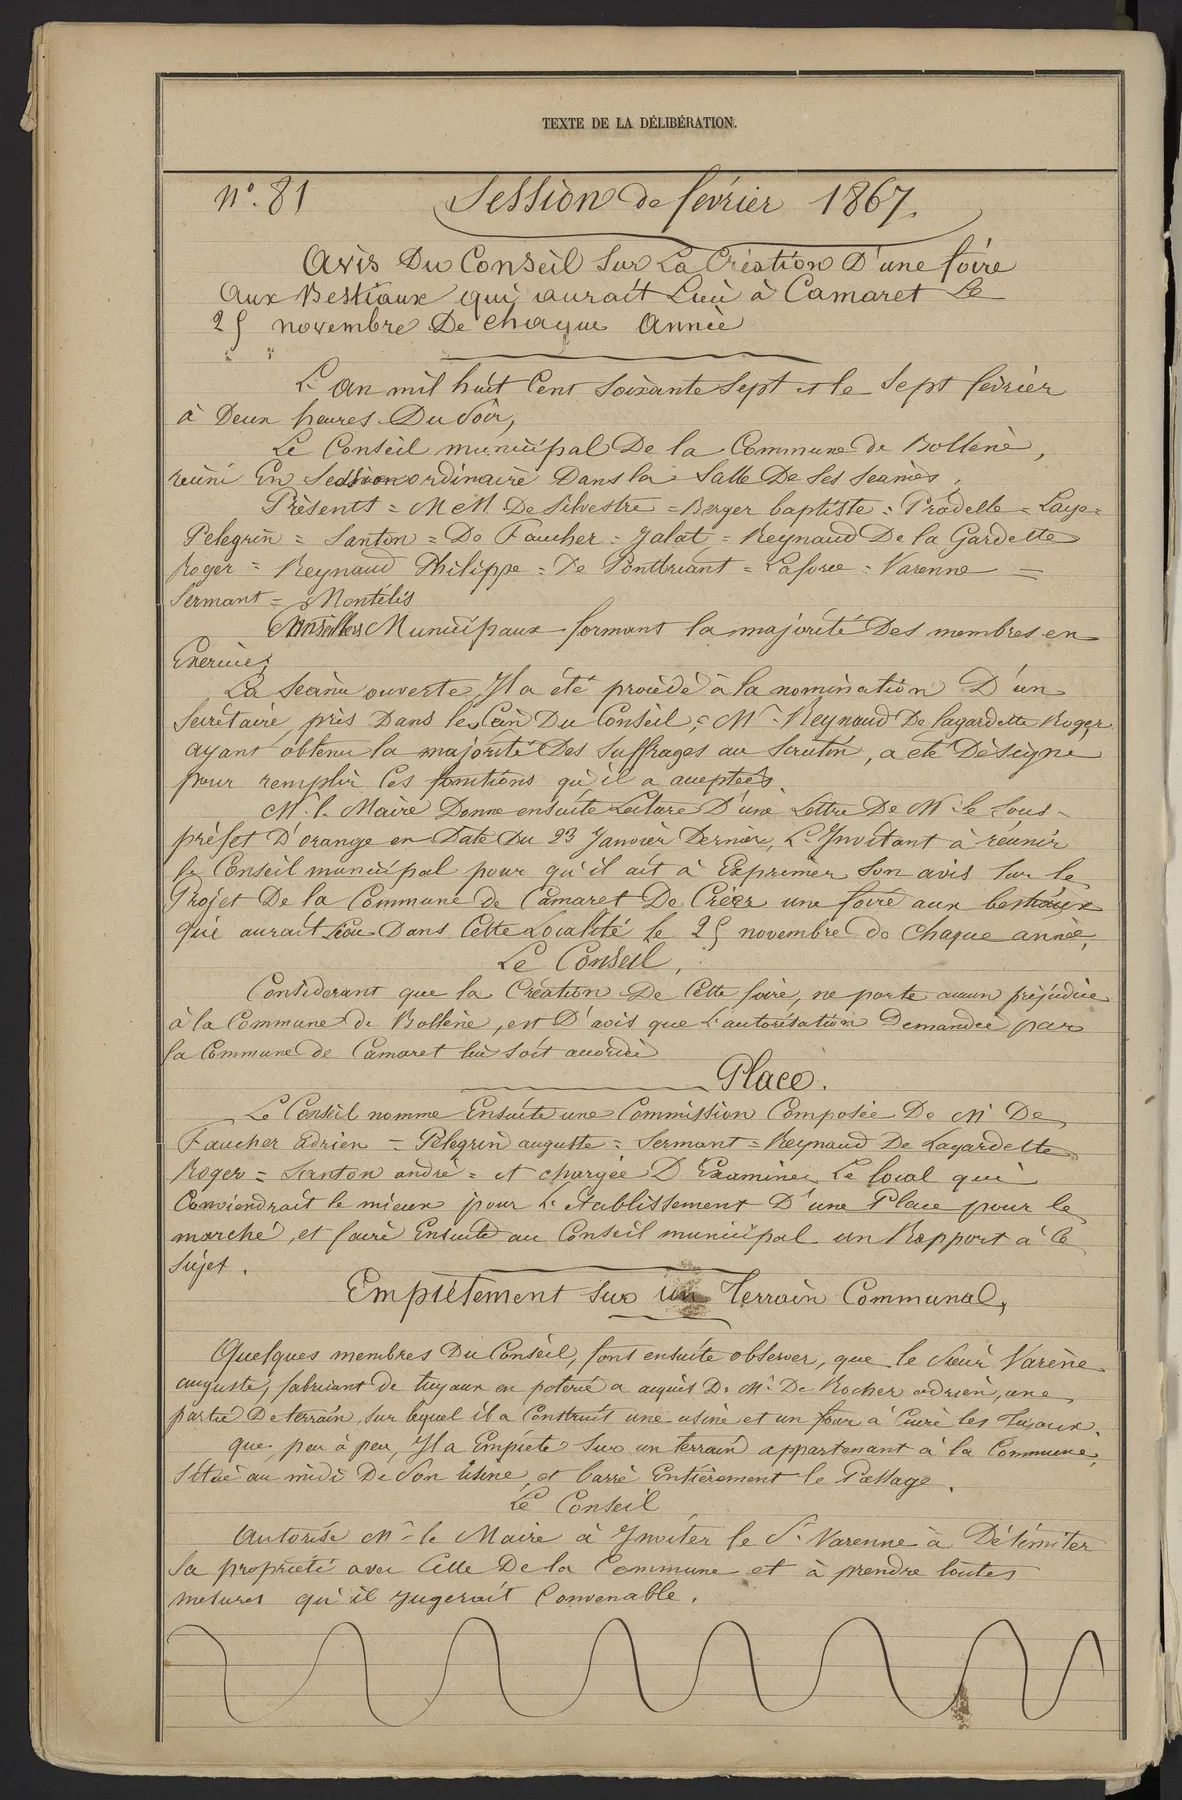 TEXTE DE LA DÉLIBÉRATION.
N°. 81 Session de février 1867.
Avis Du Conseil sur La Création D'une foire
Aux Bestiaux qui aurait Lieu à Camaret Le
25 novembre De chaque Année
L'An mil huit Cent soixante sept et le sept février
à Deux heures Du Soir,
Le Conseil municipal De la Commune de Bollène,
réuni En Session ordinaire Dans la Salle De Ses séances,
Présents = M M De Silvestre = Berger baptiste = Pradelle = Laye =
Pelegrin = Santon = De Faucher = Jalat = Reynaud De la Gardette
Roger = Reynaud Philippe = De Pontbriant = Laforce = Varenne =
Sermant = Montélis
Conseillers Municipaux formant la majorité Des membres en
Exercice,
La séance ouverte, Il a été procédé à la nomination D'un
Secrétaire, pris Dans le sein Du Conseil; Mr Reynaud De lagardette Roger
ayant obtenu la majorité Des suffrages au Scrutin, a été Désigné
pour remplir Ces fonctions qu'il a acceptées
Mr le Maire Donne ensuite Lecture D'une Lettre De Mr le Sous-
préfet D'orange en Date Du 23 Janvier Dernier, L'Invitant à réunir
le Conseil municipal pour qu'il ait à Exprimer Son avis sur le
Projet De la Commune de Camaret De Créer une foire aux bestiaux
qui aurait Lieu Dans Cette Localité le 25 novembre de Chaque année,
Le Conseil,
Considerant que la Création De Cette foire, ne porte aucun préjudice
à la Commune de Bollène, est D'avis que L'autorisation Demandée par
la Commune de Camaret lui soit accordée
Place.
Le Conseil nomme Ensuite une Commission Composée De Mr De
Faucher Adrien = Pelegrin auguste = Sermant = Reynaud De Lagardette
Roger = Santon andré = et chargée D'Examiner Le local qui
Conviendrait le mieux pour L'établissement D'une Place pour le
marché, et faire Ensuite au Conseil municipal un Rapport à ce
sujet.
Empiétement sur un Terrain Communal,
Quelques membres Du Conseil, font ensuite observer, que le Sieur Varène
auguste, fabricant de tuyaux en poterie a acquis De Mr De Rocher adrien, une
partie De terrain, sur lequel il a Construit une usine et un four à Cuire les Tuyaux.
que, peu à peu, Il a Empiété sur un terrain appartenant à la Commune,
Situé au midi De Son Usine, et barré Entièrement le Passage.
Le Conseil
Autorise Mr le Maire à Inviter le Sr Varenne à Délimiter
Sa propriété avec Celle De la Commune et à prendre toutes
mesures qu'il Jugerait Convenable.